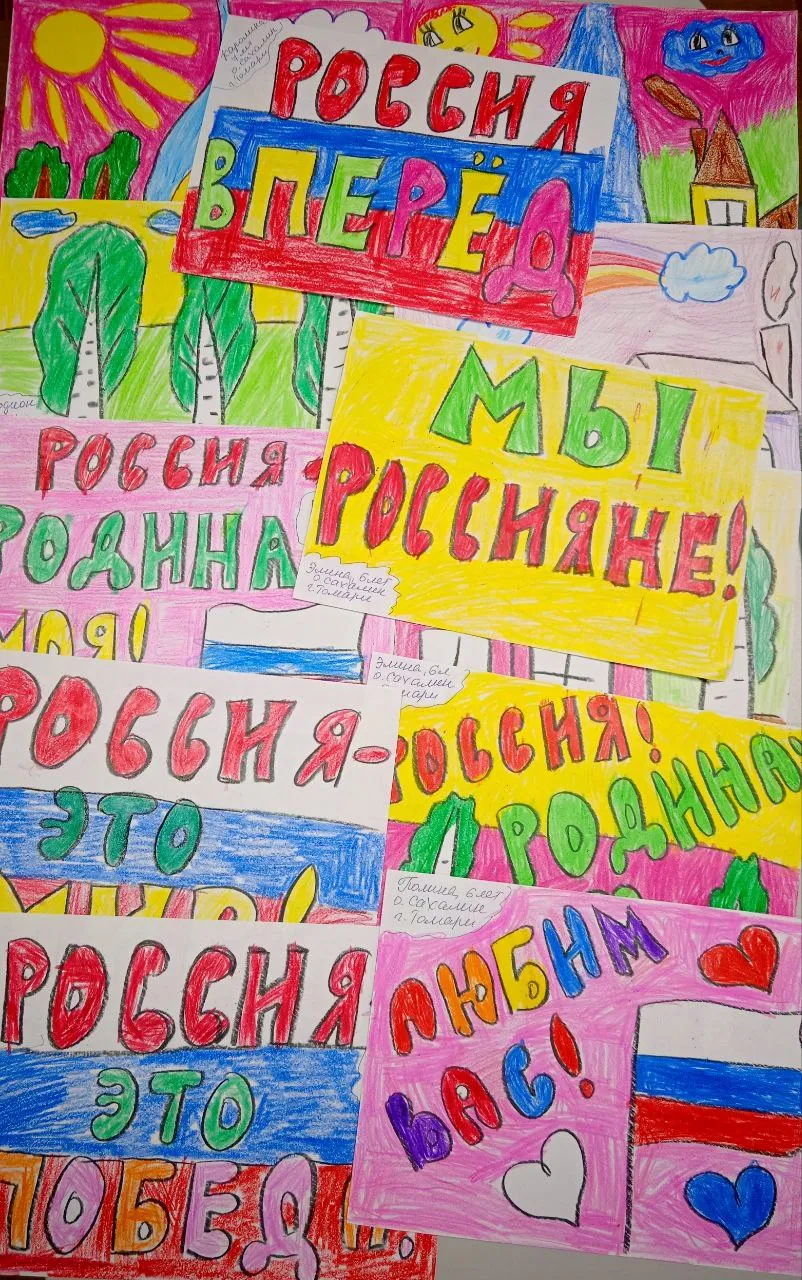 Каролина
7 лет
о. Сахалин
г. Томари
РОССИЯ
ВПЕРЁД
МЫ
РОССИЯНЕ!
Элина, 6 лет
о. Сахалин
г. Томари
РОССИЯ-
РОДИНА
МОЯ!
Элина, 6 л
о. Сахалин
РОССИЯ-
ЭТО
МИР!
РОССИЯ!
РОДИНА
Полина, 6 лет
о. Сахалин
г. Томари
ЛЮБИМ
ВАС!
РОССИЯ
ЭТО
ПОБЕДА!